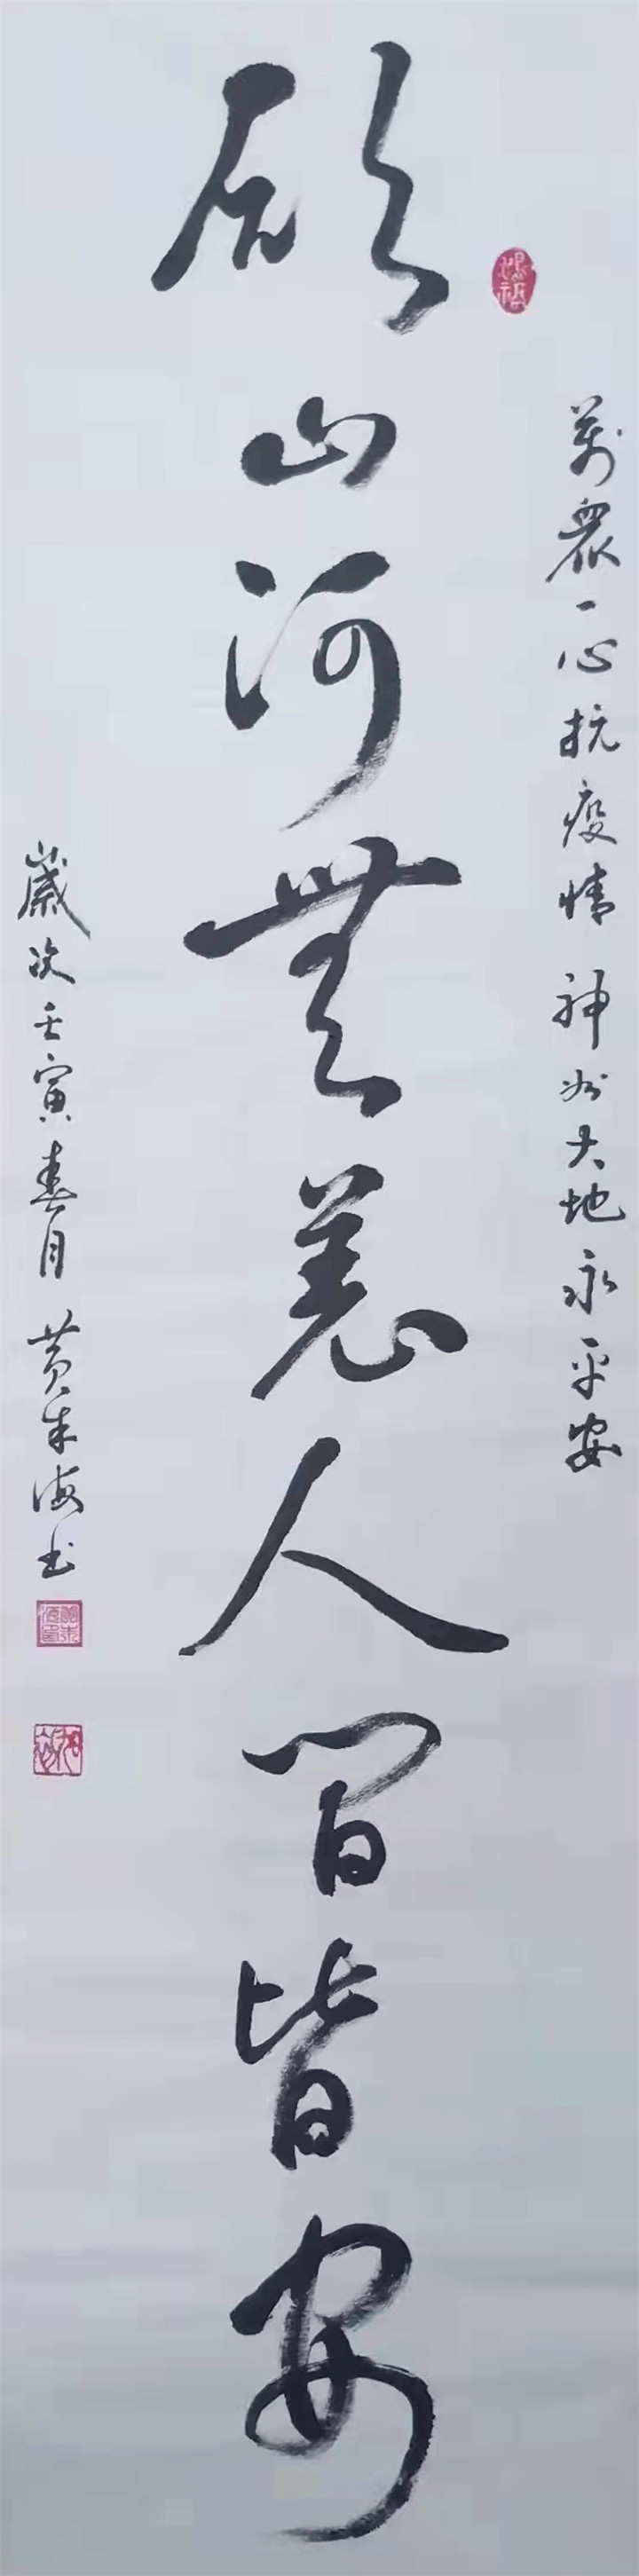 萬衆一心抗疫情神州大地永平安
願山河無恙人間皆安
歲次壬寅春月黄朱海书